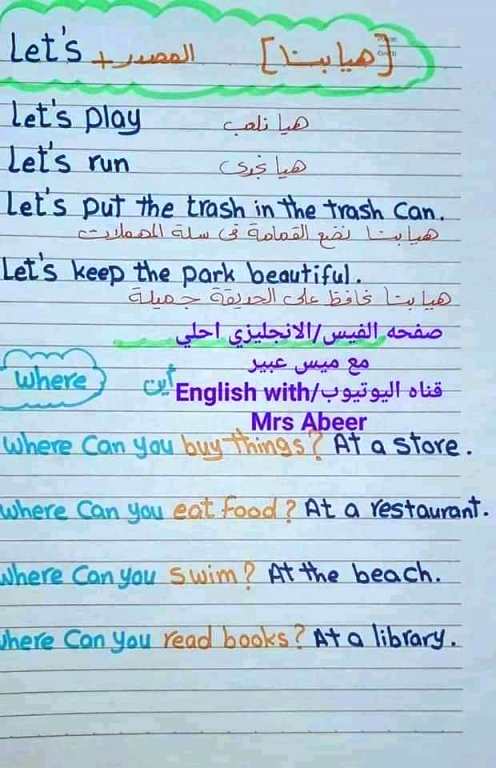 Let's + المصدر [هيا بنا]
Let's play هيا نلعب
Let's run هيا نجرى
Let's put the trash in the trash can.
هيا بنا نضع القمامة فى سلة المهملات
Let's keep the park beautiful.
هيا بنا نحافظ على الحديقة جميلة
صفحه الفيس/الانجليزي احلي
مع ميس عبير
where أين
قناه اليوتيوب/English with
Mrs Abeer
Where Can you buy things? At a store.
where Can you eat food? At a restaurant.
where Can you swim? At the beach.
where Can you read books? At a library.